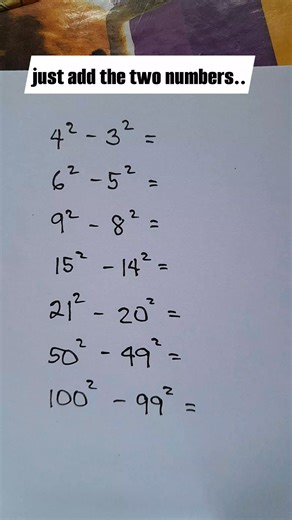 just add the two numbers..
4² - 3² =
6² - 5² =
9² - 8² =
15² - 14² =
21² - 20² =
50² - 49² =
100² - 99² =